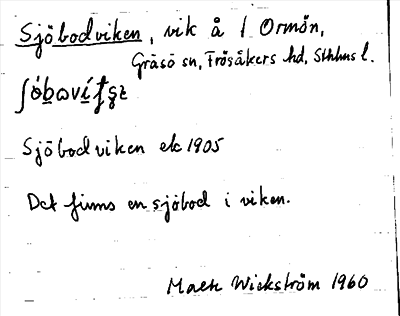 Sjöbodviken, vik å f. Ormön,
Gräsö sn, Frösåkers hd, Sthlms l.
Sjöbodviken ek 1905
Det finns en sjöbod i viken.
Wickström 1960